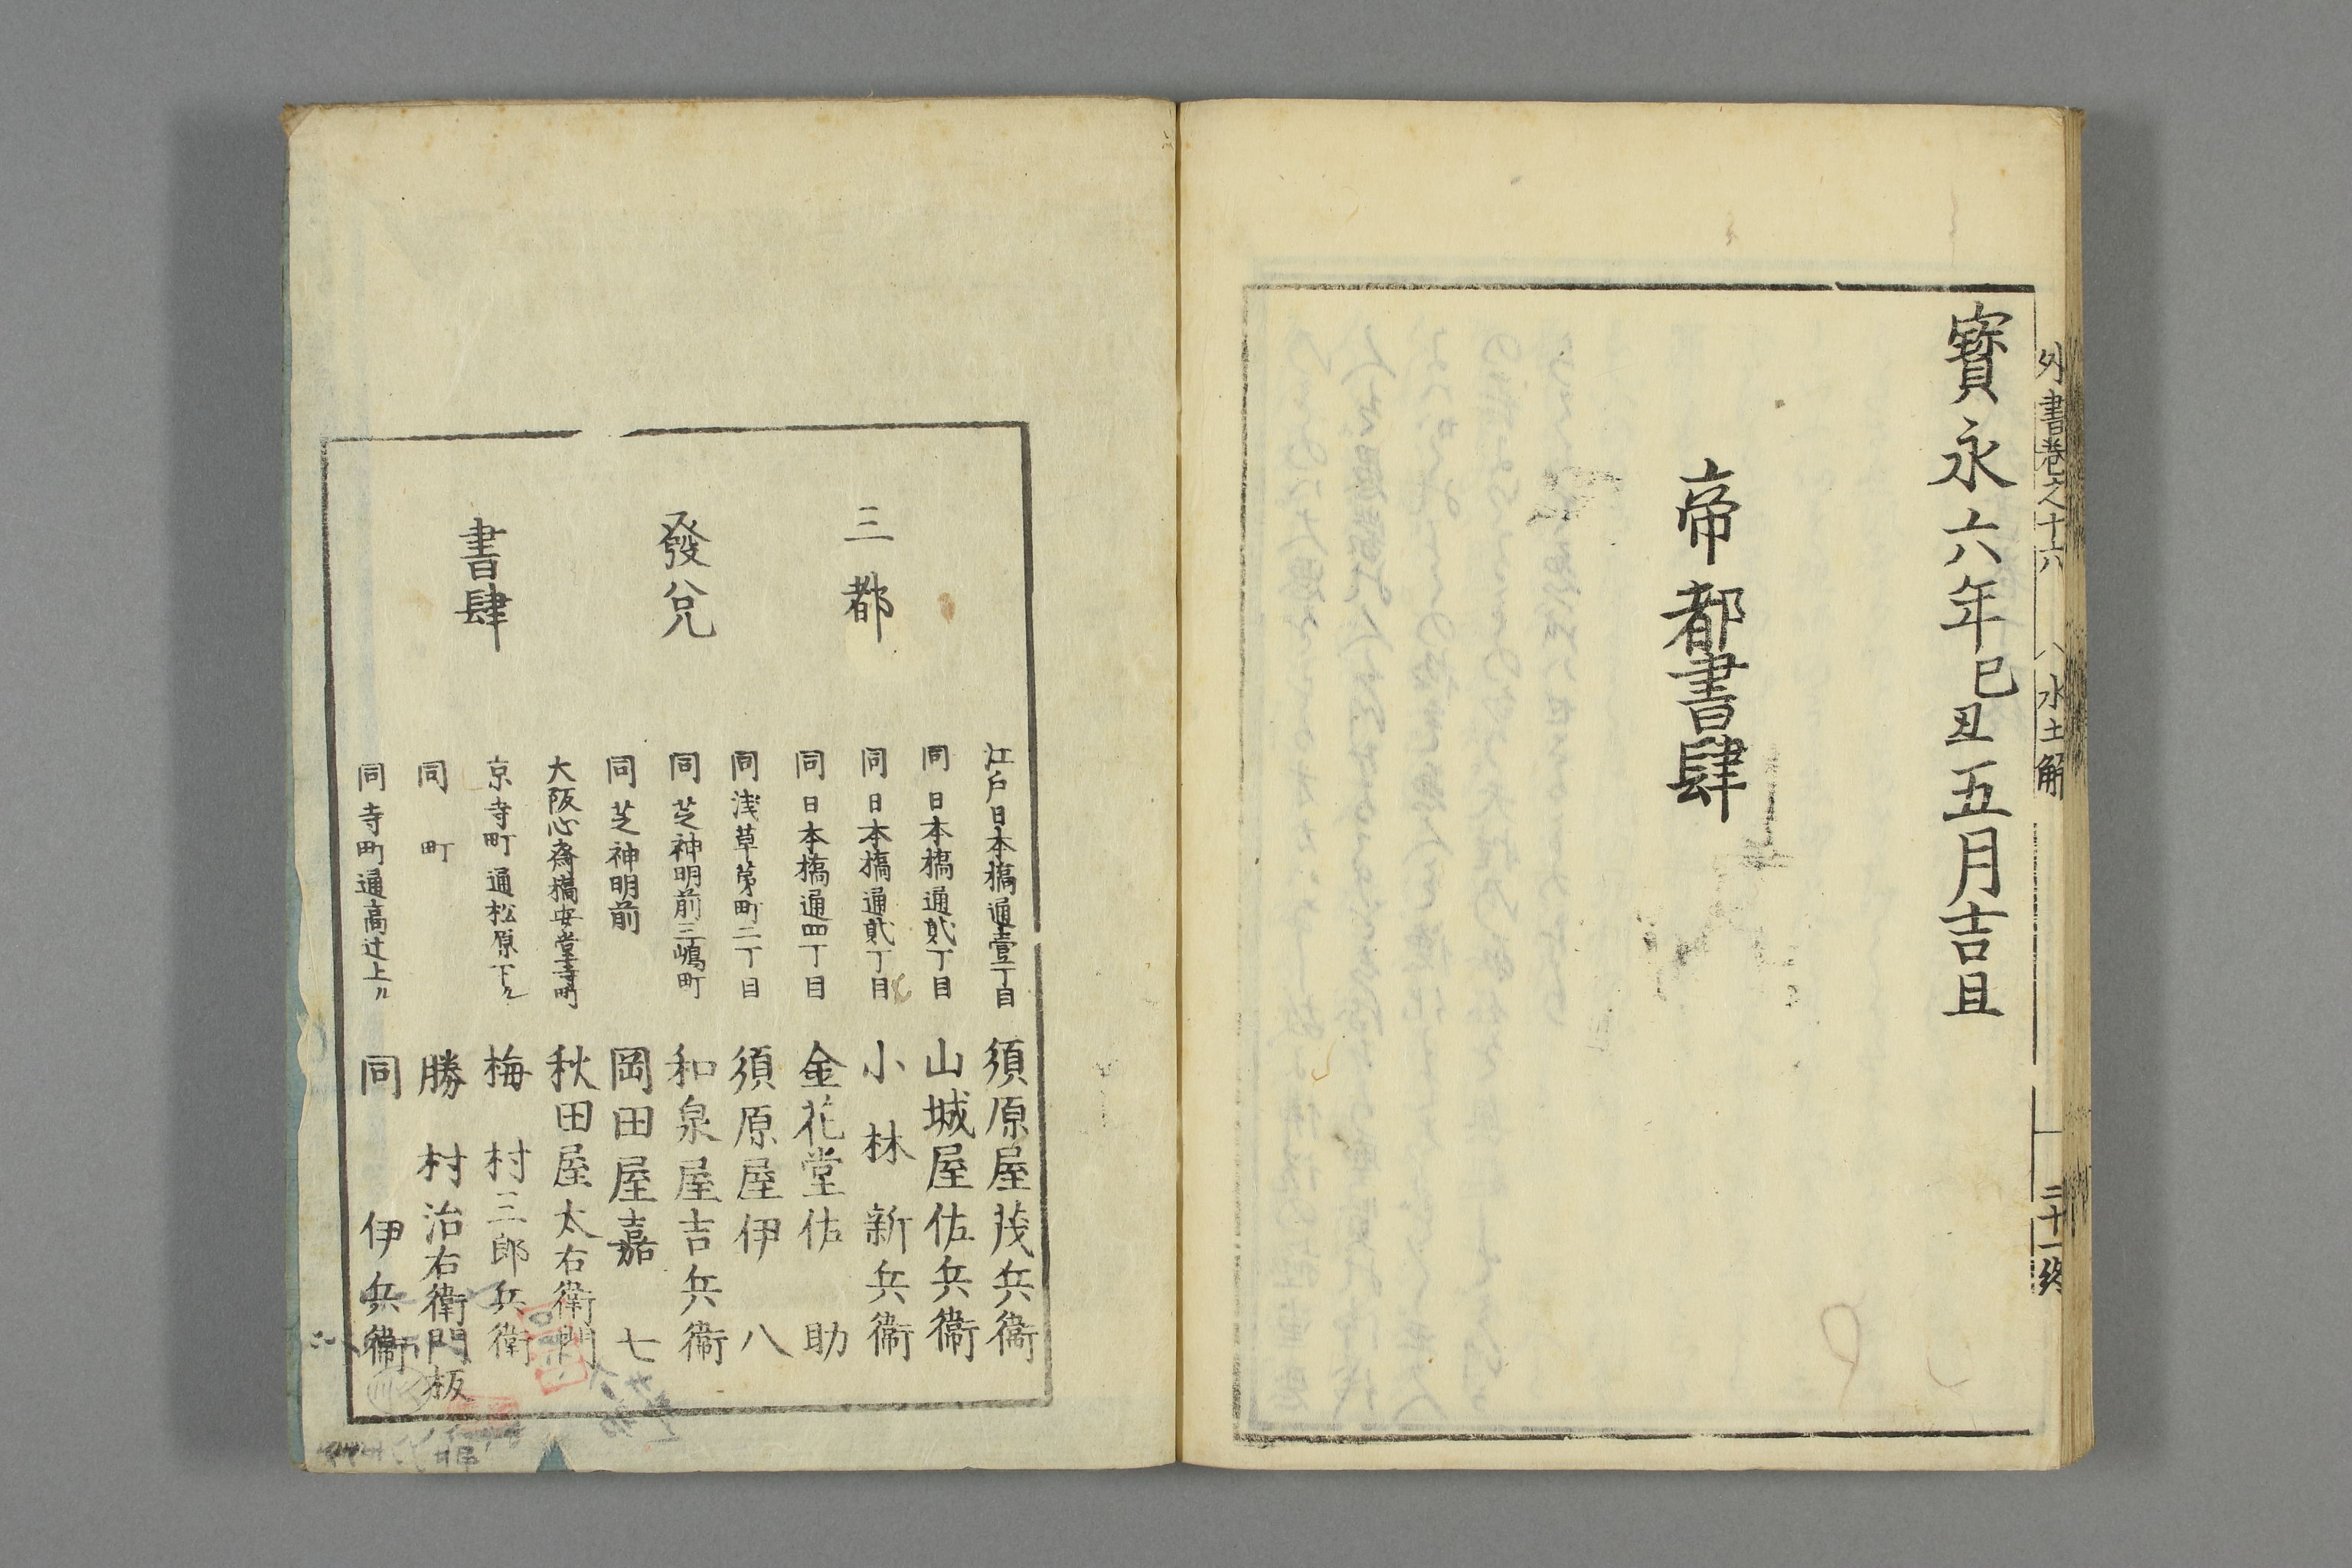 外書卷之十六 水土解 三十一終
寶永六年己丑五月吉旦
帝都書肆
三都
發兌
書肆
江戸日本橋通壹丁目 須原屋茂兵衞
同 日本橋通貳丁目 山城屋佐兵衞
同 日本橋通貳丁目 小林新兵衞
同 日本橋通四丁目 金花堂佐助
同 浅草第町二丁目 須原屋伊八
同 芝神明前三嶋町 和泉屋吉兵衞
同 芝神明前 岡田屋嘉七
大阪心斎橋安堂寺町 秋田屋太右衞門
京寺町通松原下ル 梅村三郎兵衛
同 町 勝村治右衛門板
同 寺町通高辻上ル 同 伊兵衞